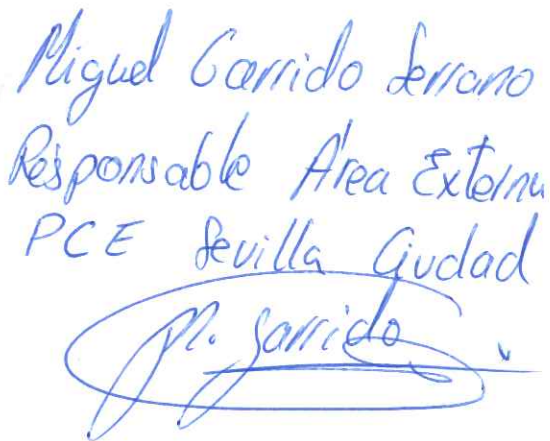 Miguel Garrido Serrano
Responsable Área Externa
PCE Sevilla Ciudad
M. Garrido